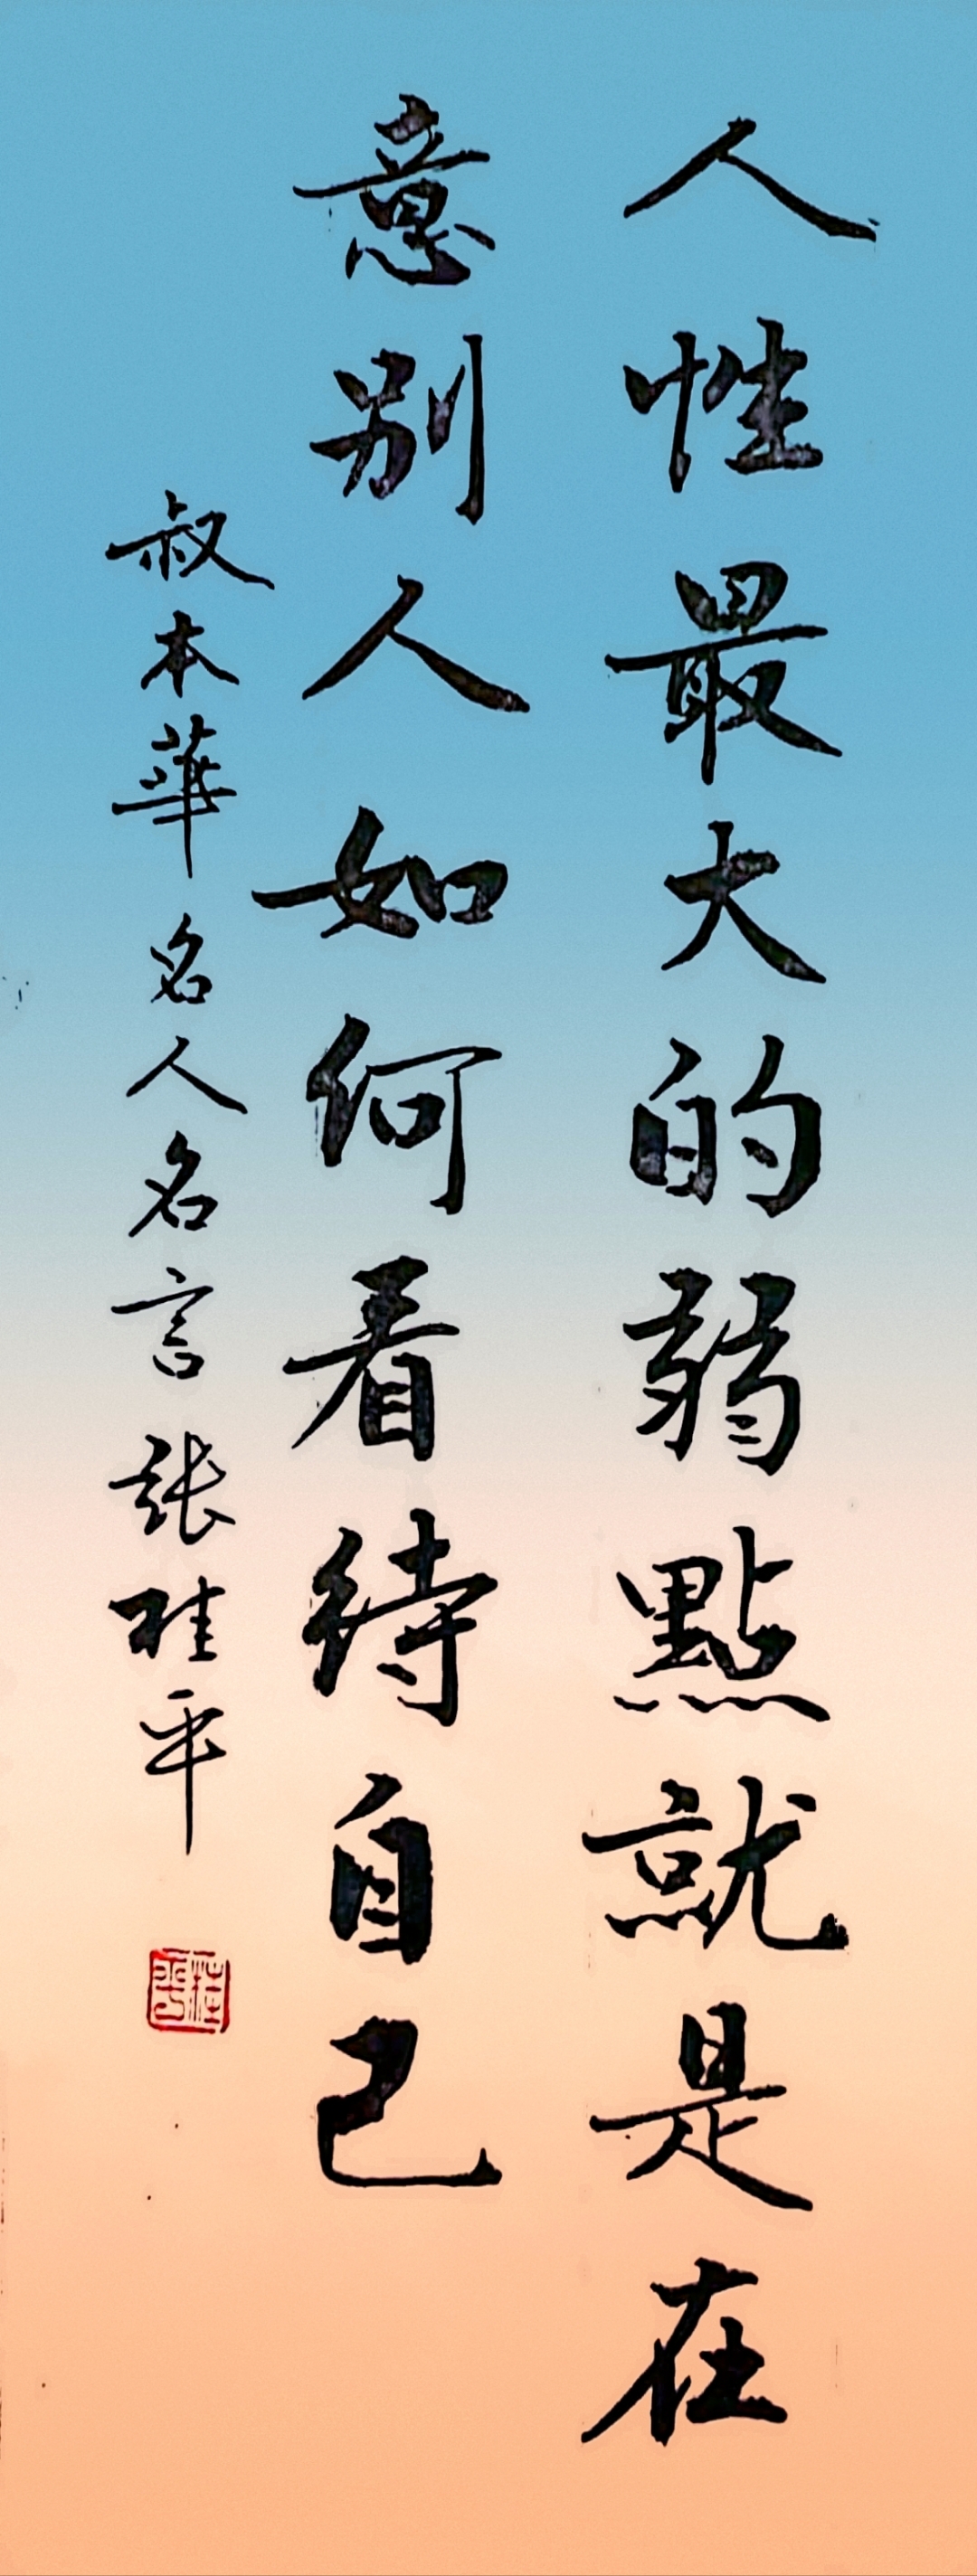 人性最大的弱點就是在
意别人如何看待自己
叔本華名人名言張桂平
桂平